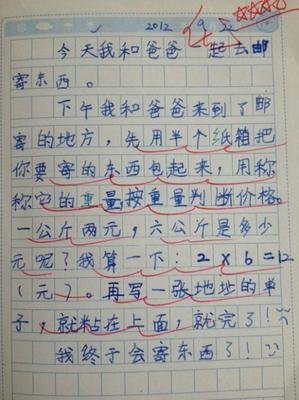 2012 9 2
今天我和爸爸一起去邮
寄东西。
下午我和爸爸来到了邮
寄的地方，先用半个纸箱把
你要寄的东西包起来，用称
称它的重量按重量判断价格。
一公斤两元，六公斤是多少
元呢？我算一下：2×6=12
（元）。再写一张地址的单
子，就粘在上面，就完了！
我终于会寄东西了！